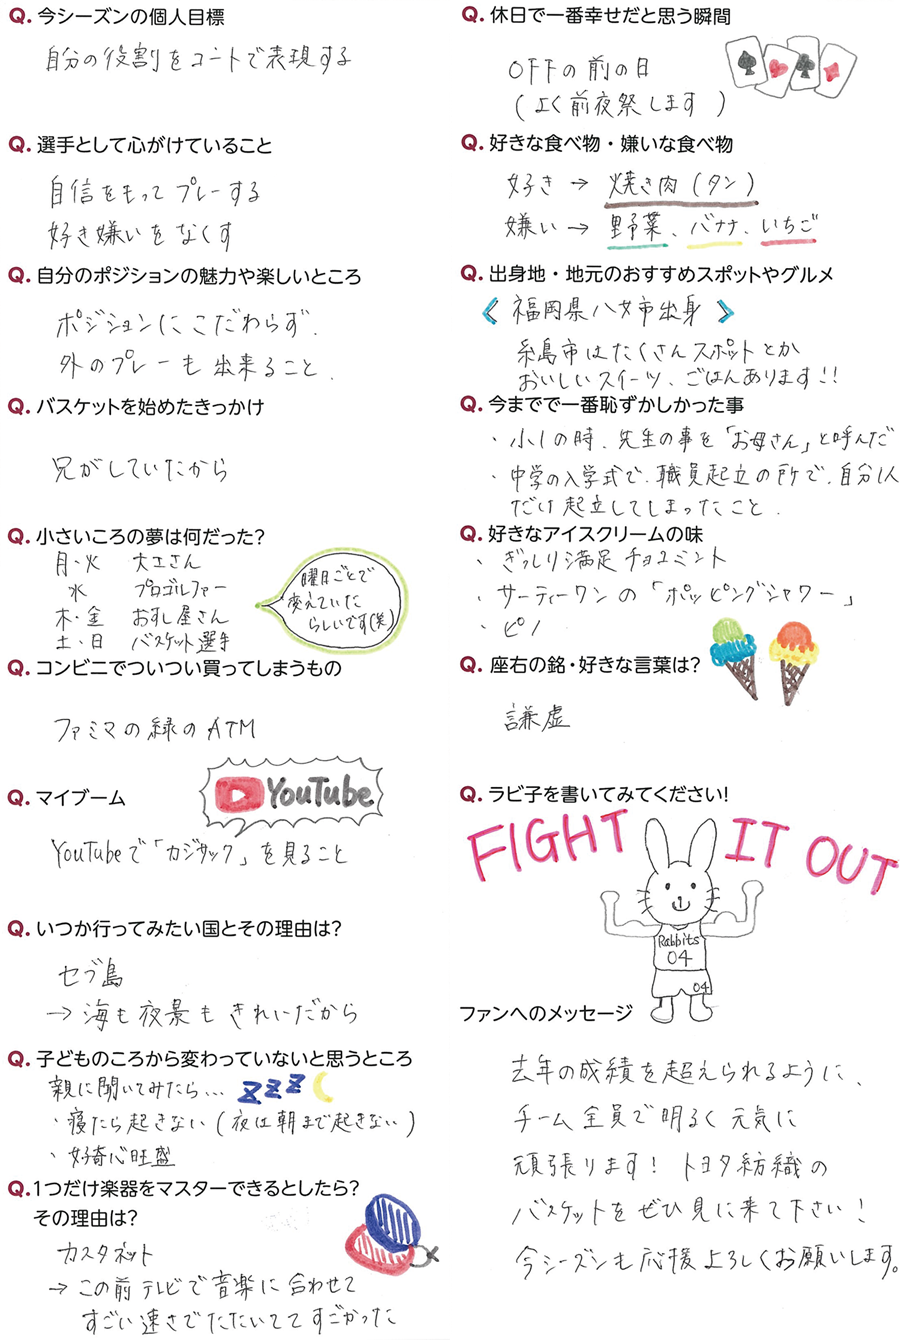 Q. 今シーズンの個人目標
自分の役割をコートで表現する
Q. 選手として心がけていること
自信をもってプレーする
好き嫌いをなくす
Q. 自分のポジションの魅力や楽しいところ
ポジションにこだわらず.
外のプレーも出来ること.
Q. バスケットを始めたきっかけ
兄がしていたから
Q. 小さいころの夢は何だった?
月・火 大工さん
水 プロゴルファー
木・金 おすし屋さん
土・日 バスケット選手
曜日ごとで
変えていた
らしいです(笑)
Q. コンビニでついつい買ってしまうもの
ファミマの緑のATM
Q. マイブーム
YouTube
YouTubeで「カジサック」を見ること
Q. いつか行ってみたい国とその理由は?
セブ島
→ 海も夜景もきれいだから
Q. 子どものころから変わっていないと思うところ
親に聞いてみたら... zzz
・寝たら起きない(夜は朝まで起きない)
・好奇心旺盛
Q. 1つだけ楽器をマスターできるとしたら?
その理由は?
カスタネット
→ この前テレビで音楽に合わせて
すごい速さでたたいててすごかった
Q. 休日で一番幸せだと思う瞬間
OFFの前の日
(よく前夜祭します)
Q. 好きな食べ物・嫌いな食べ物
好き → 焼き肉(タン)
嫌い → 野菜、バナナ、いちご
Q. 出身地・地元のおすすめスポットやグルメ
〈 福岡県八女市出身 〉
糸島市はたくさんスポットとか
おいしいスイーツ、ごはんあります!!
Q. 今までで一番恥ずかしかった事
・小1の時、先生の事を「お母さん」と呼んだ
・中学の入学式で、職員起立の所で、自分1人
だけ起立してしまったこと.
Q. 好きなアイスクリームの味
・ぎっしり満足チョコミント
・サーティーワンの「ポッピングシャワー」
・ピノ
Q. 座右の銘・好きな言葉は?
謙虚
Q. ラビ子を書いてみてください!
FIGHT IT OUT
Rabbits
04
04
ファンへのメッセージ
去年の成績を超えられるように、
チーム全員で明るく元気に
頑張ります! トヨタ紡織の
バスケットをぜひ見に来て下さい!
今シーズンも応援よろしくお願いします。